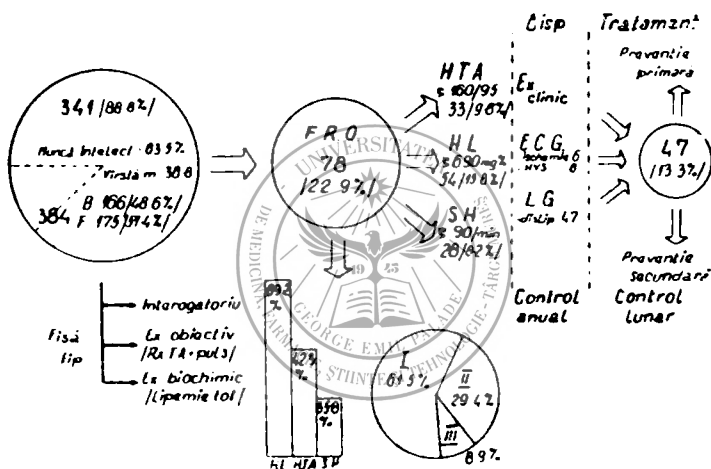 341 /88.8%/
Muncă intelect. 63.5%
Vîrsta m. 38.8
384
B 166/48.6%/
F 175/51.4%/
Fișă
tip
Interogatoriu
Ex obiectiv
/Rx TA+puls/
Ex biochimic
/Lipemie tot/
FRO
78
/22.9%/
HTA
160/95
33/9.6%/
HL
690 mg%
54/15.8%/
SH
90/min
28/8.2%/
%
42.
%
%
HL HTA SH
I
61.5%
II
29.4%
III
8.9%
Disp
Ex
clinic
ECG
ischemie 6
HVS 8
LG
dislip 47
Control
anual
Tratament
Prevenție
primară
47
/13.3%/
Prevenție
secundară
Control
lunar
UNIVERSITATEA
DE MEDICINĂ, FARMACIE, ȘTIINȚE ȘI TEHNOLOGIE
GEORGE EMIL PALADE
1945